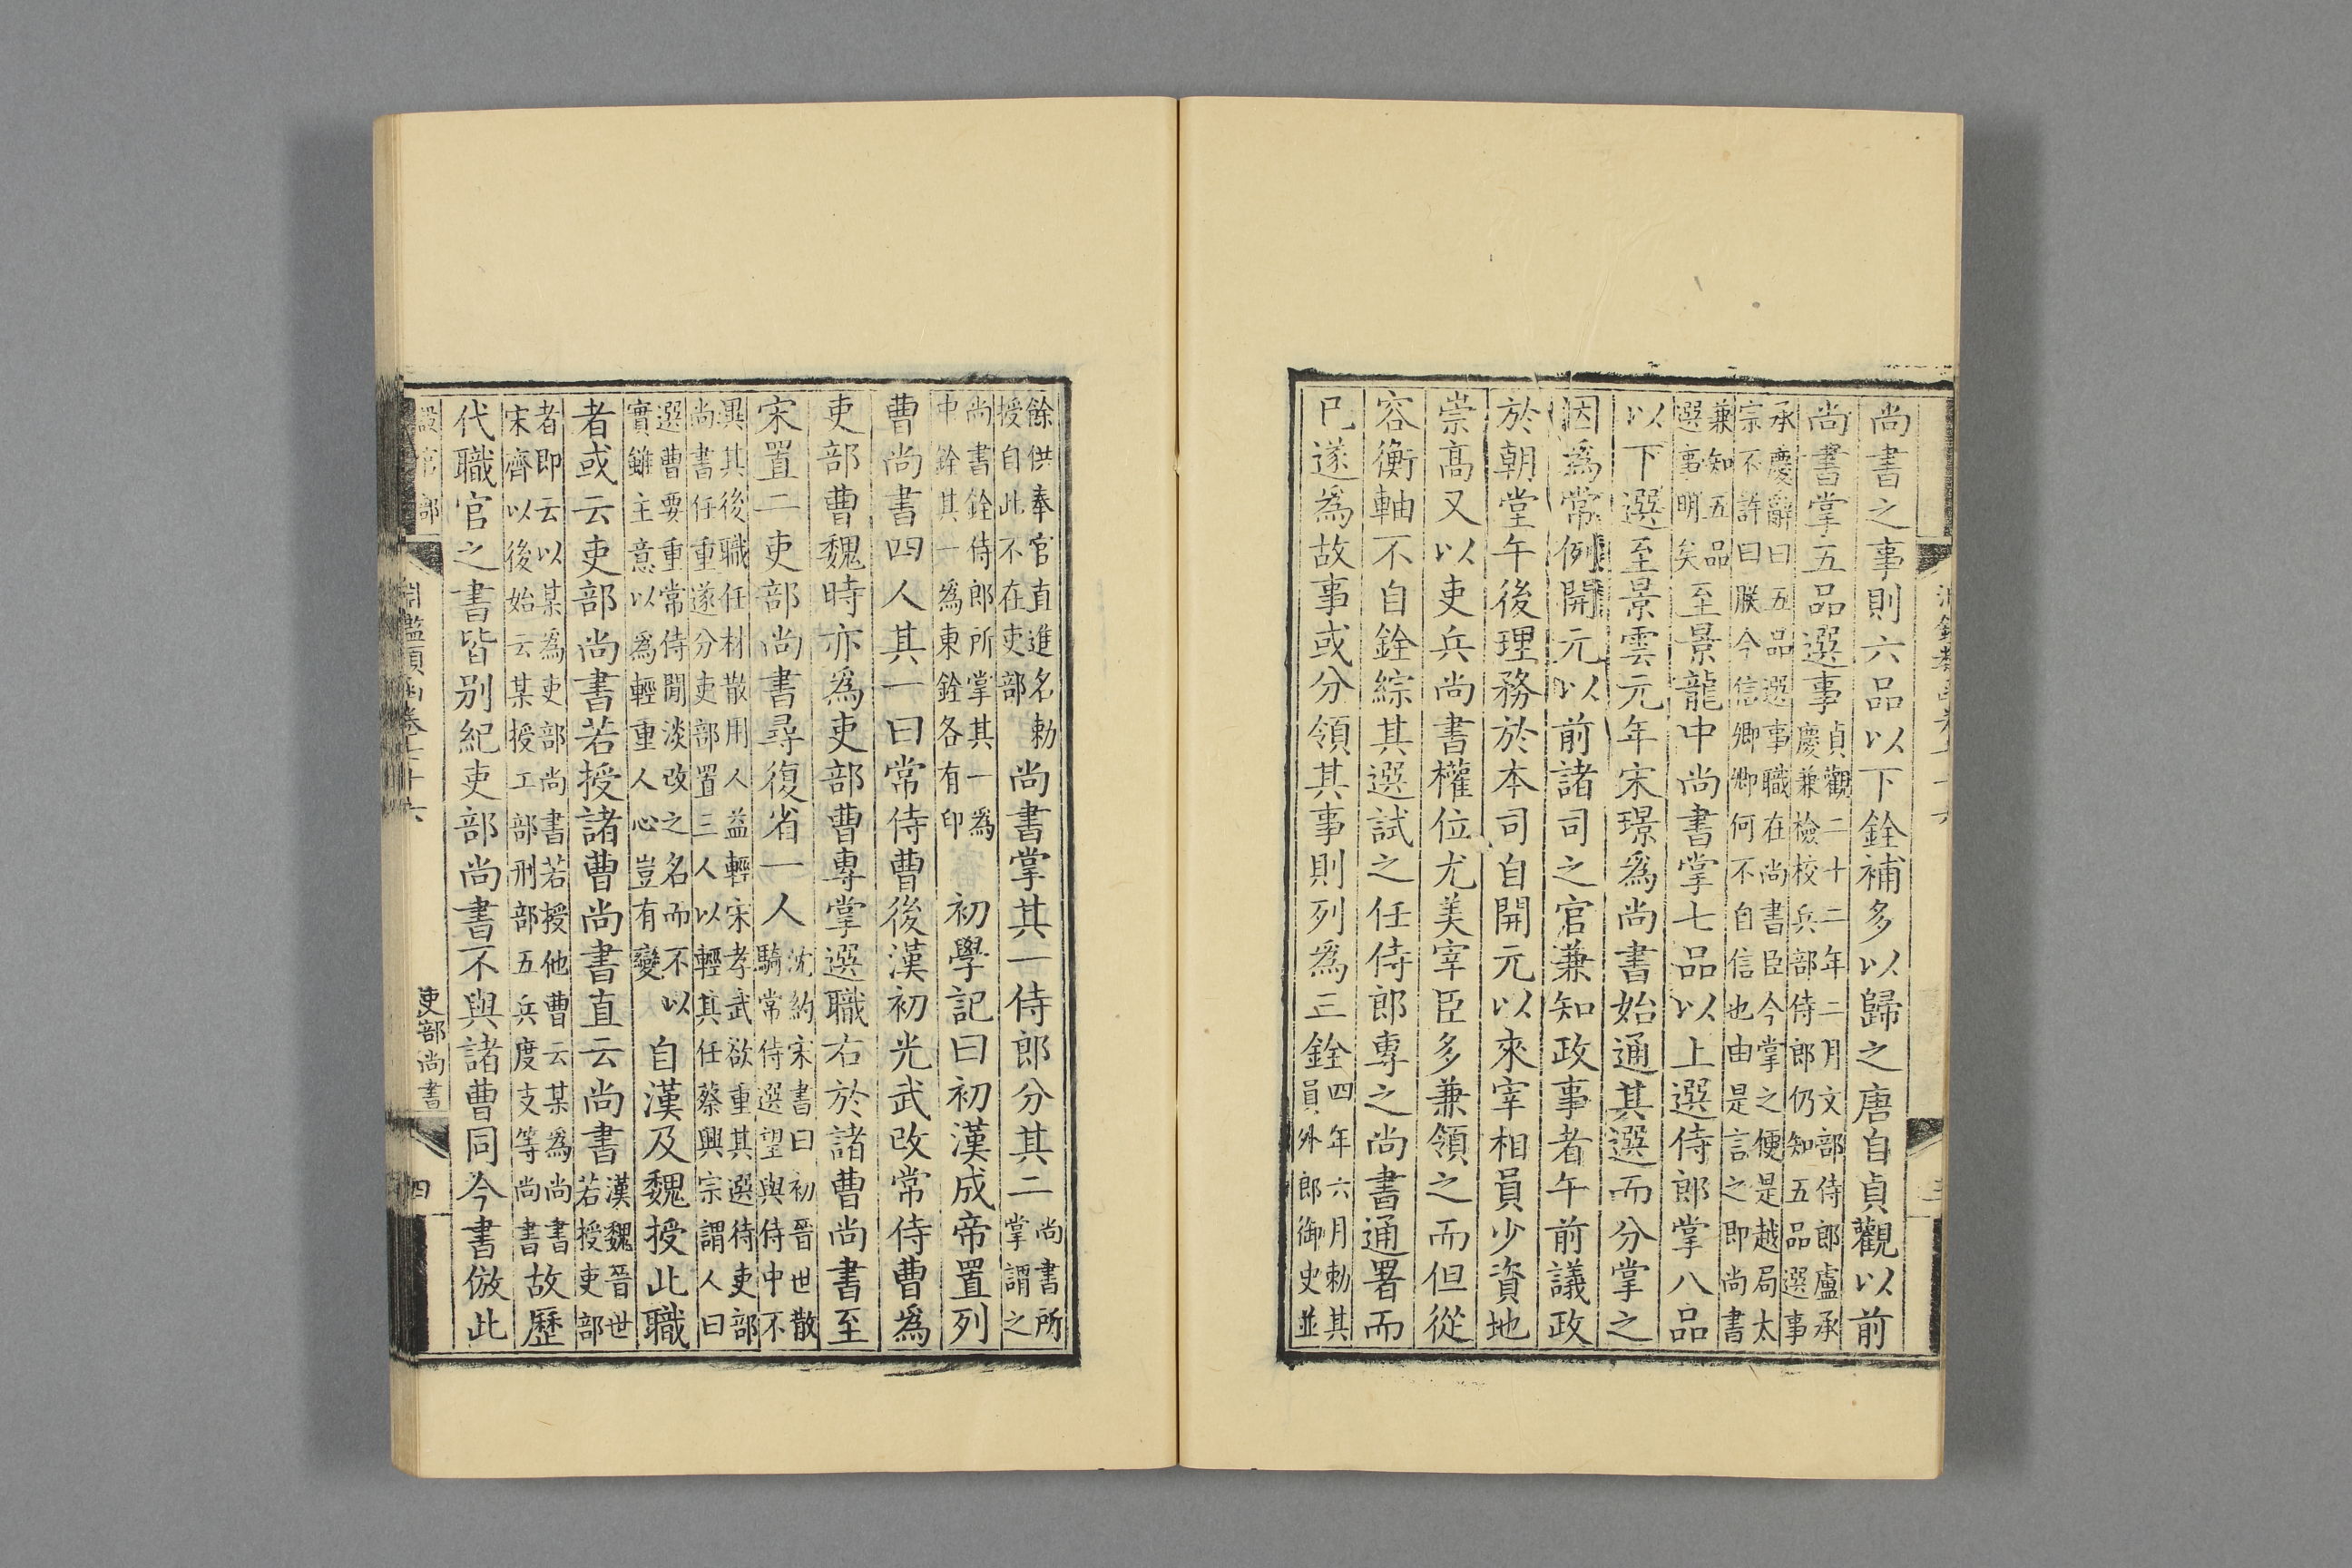 尚書之事則六品以下銓補多以歸之唐自貞觀以前
尚書掌五品選事貞觀二十二年二月文部侍郎盧承慶兼檢校兵部侍郎仍知五品選事
承慶辭曰五品選事職在尚書臣今掌之便是越局太宗不許曰朕今信卿卿何不自信也由是言之即尚書
兼知五品選事明矣至景龍中尚書掌七品以上選侍郎掌八品
以下選至景雲元年宋璟爲尚書始通其選而分掌之
因爲常例開元以前諸司之官兼知政事者午前議政
於朝堂午後理務於本司自開元以來宰相員少資地
崇高又以吏兵尚書權位尤美宰臣多兼領之而但從
容衡軸不自銓綜其選試之任侍郎專之尚書通署而
已遂爲故事或分領其事則列爲三銓四年六月勅其員外郎御史並
餘供奉官直進名勅授自此不在吏部尚書掌其一侍郎分其二尚書所掌謂之
尚書銓侍郎所掌其一爲中銓其一爲東銓各有印初學記曰初漢成帝置列
曹尚書四人其一曰常侍曹後漢初光武改常侍曹爲
吏部曹魏時亦爲吏部曹專掌選職右於諸曹尚書至
宋置二吏部尚書尋復省一人沈約宋書曰初晉世散騎常侍選望與侍中不
異其後職任材散用人益輕宋孝武欲重其選待吏部尚書任重遂分吏部置三人以輕其任蔡興宗謂人曰
選曹要重常侍閒淡改之名而不以實雖主意以爲輕重人心豈有變自漢及魏授此職
者或云吏部尚書若授諸曹尚書直云尚書漢魏晉世若授吏部
者即云以某爲吏部尚書若授他曹云某爲尚書宋齊以後始云某授工部刑部五兵度支等尚書故歷
代職官之書皆别紀吏部尚書不與諸曹同今書倣此
設官部
淵鑑類函卷七十六
吏部尚書
四